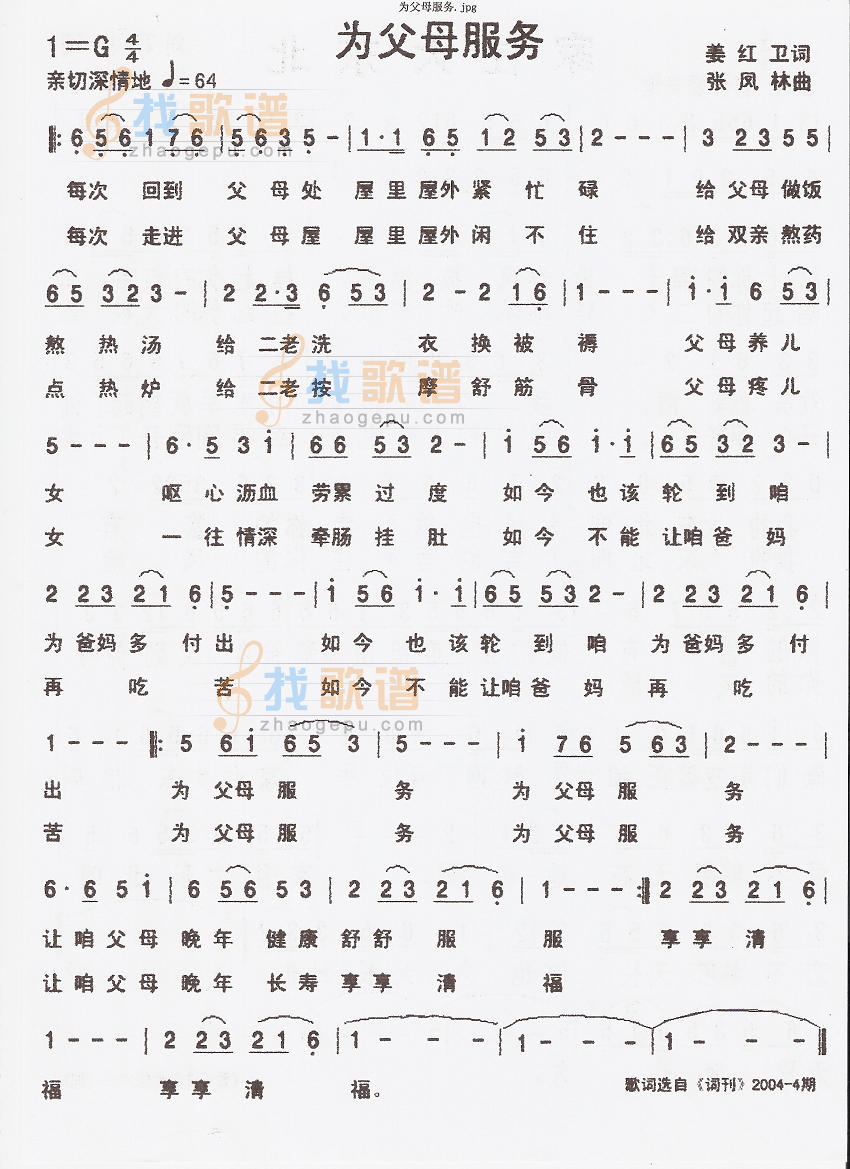 为父母服务.jpg
为父母服务
1=G 4/4
姜红卫词
亲切深情地 ♩=64
张凤林曲
找歌谱
zhaogepu.com
‖: 6 5 6 1 7 6 | 5 6 3 5 - | 1 · 1 6 5 1 2 5 3 | 2 - - - | 3 2 3 5 5
每次 回到 父母处 屋里屋外紧忙碌 给父母做饭
每次 走进 父母屋 屋里屋外闲不住 给双亲熬药
6 5 3 2 3 - | 2 2 · 3 6 5 3 | 2 - 2 1 6 | 1 - - - | i · i 6 5 3
熬热汤 给二老洗 衣换被褥 父母养儿
点热炉 给二老按 摩舒筋骨 父母疼儿
找歌谱
zhaogepu.com
5 - - - | 6 · 5 3 i | 6 6 5 3 2 - | i 5 6 i · i | 6 5 3 2 3 - |
女 呕心沥血 劳累过度 如今也该轮到咱
女 一往情深 牵肠挂肚 如今不能让咱爸妈
2 2 3 2 1 6 | 5 - - - | i 5 6 i · i | 6 5 5 3 2 - | 2 2 3 2 1 6 |
为爸妈多付出 如今也该轮到咱 为爸妈多付
再吃苦 如今不能让咱爸妈再吃
找歌谱
zhaogepu.com
1 - - - ‖: 5 6 i 6 5 3 | 5 - - - | i 7 6 5 6 3 | 2 - - - |
出 为父母服务 为父母服务
苦 为父母服务 为父母服务
6 · 6 5 i | 6 5 6 5 3 | 2 2 3 2 1 6 | 1 - - - :‖ 2 2 3 2 1 6 |
让咱父母晚年健康舒舒服服 享享清
让咱父母晚年长寿享享清福
1 - - - | 2 2 3 2 1 6 | 1 - - - | 1 - - - | 1 - - - ‖
福 享享清福。
歌词选自《词刊》2004-4期